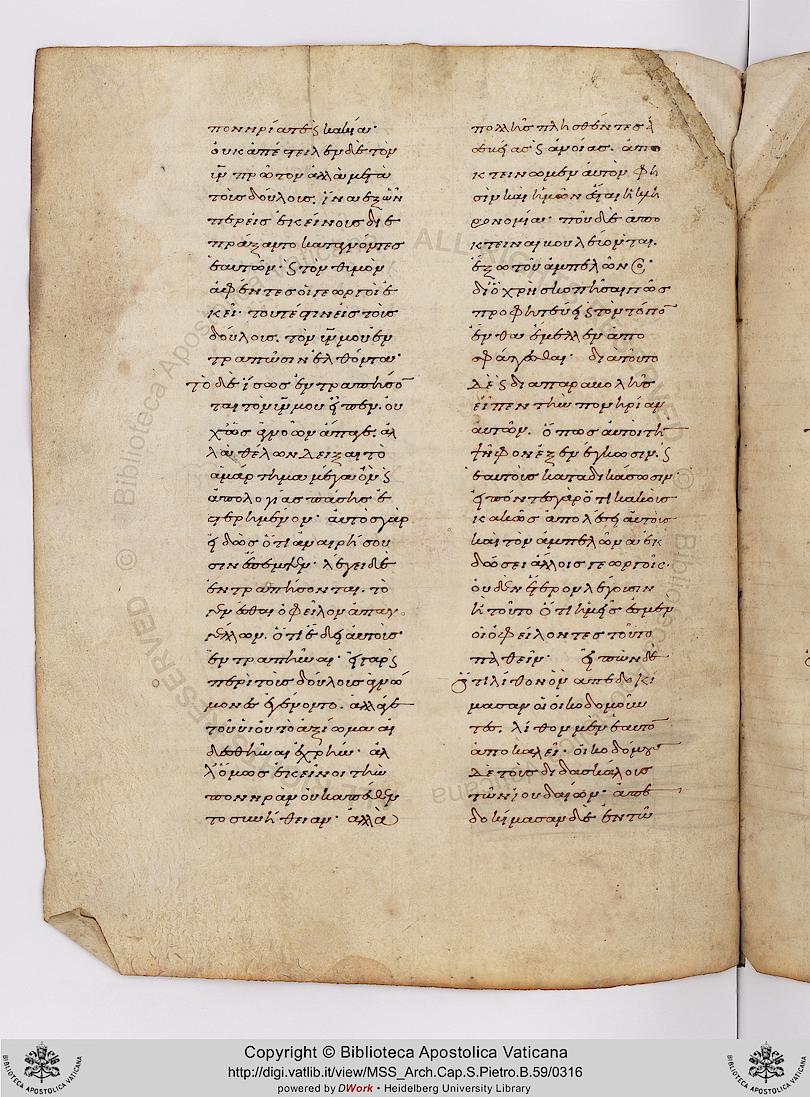 πονηρίας καὶ κακίαν·
οὐκ ἀπέστειλεν δὲ τὸν
ὑν πρῶτον ἀλλὰ μετὰ
τοὺς δούλους. ἵνα ἐξ ὧν
περ εἰς ἐκείνους διε
πράξαντο καταγνόντες
ἑαυτῶν· τὸν θυμὸν
ἀφέντες οἱ γεωργοὶ ἐ
κεῖ· τοῦτέστιν εἰς τοὺς
δούλους. τὸν ὑν μου ἐν
τραπῶσιν ἐλθόντα·
τὸ δὲ ἴσως ἐντραπήσον
ται τὸν ὑν μου εἶπεν. οὐ
χ ὡς ἀγνοῶν ἄπαγε. ἀλ
λὰ θέλων δεῖξαι τὸ
ἁμάρτημα μέγα ὂν καὶ
ἀπολογίας πάσης ἐ
στερημένον· αὐτὸς γὰρ
εἰδὼς ὅτι ἀναιρήσου
σιν ἔπεμψεν· λέγει δὲ
ἐντραπήσονται. τὸ
γενέσθαι ὀφεῖλον ἀπαγ
γέλλων. ὅτι ἔδει αὐτοὺς
ἐντραπῆναι· εἰ γὰρ καὶ
περὶ τοὺς δούλους ἀγνώ
μονες ἐγένοντο. ἀλλά γε
τοῦ υἱοῦ τὸ ἀξίωμα αἰ
δεσθῆναι ἐχρῆν· ἀλ
λ' ὅμως ἐκεῖνοι τὴν
πονηρὰν οὐκ ἀπέθεν
το συνήθειαν· ἀλλὰ
πολλῆς πλησθέντες
καὶ ἀνοίας. ἀπο
κτείνωμεν αὐτὸν φη
σὶν καὶ ἡμῶν ἔσται ἡ κλη
ρονομία· ποῦ δὲ ἀπο
κτεῖναι βουλεύονται.
ἔξω τοῦ ἀμπελῶνος·
διὸ χρὴ σκοπῆσαι πῶς
προφητεύει καὶ τὸν τόπον
ἔνθα ἔμελλεν ἀπο
σφάγεσθαι· διὰ τοῦτο
δὲ καὶ διὰ παραβολῆς
εἶπεν τὴν πονηρίαν
αὐτῶν. ὅπως αὐτοὶ τὴν
ψῆφον ἐξενέγκωσιν. καὶ
ἑαυτοὺς καταδικάσωσιν·
εἰπόντες γὰρ ὅτι κακοὺς
κακῶς ἀπολέσει αὐτοὺς
καὶ τὸν ἀμπελῶνα ἐκ
δώσει ἄλλοις γεωργοῖς·
οὐδὲν ἕτερον λέγουσιν
ἢ τοῦτο ὅτι ἡμεῖς ἐσμὲν
οἱ ὀφείλοντες τοῦτο
παθεῖν· εἰπὼν δὲ
ὅτι λίθον ὃν ἀπεδοκί
μασαν οἱ οἰκοδομοῦν
τες. λίθον μὲν ἑαυτὸν
ἀποκαλεῖ· οἰκοδόμους
δὲ τοὺς διδασκάλους
τῶν ἰουδαίων· ἀπε
δοκίμασαν δὲ ἐν τῷ
Copyright © Biblioteca Apostolica Vaticana
http://digi.vatlib.it/view/MSS_Arch.Cap.S.Pietro.B.59/0316
powered by DWork • Heidelberg University Library